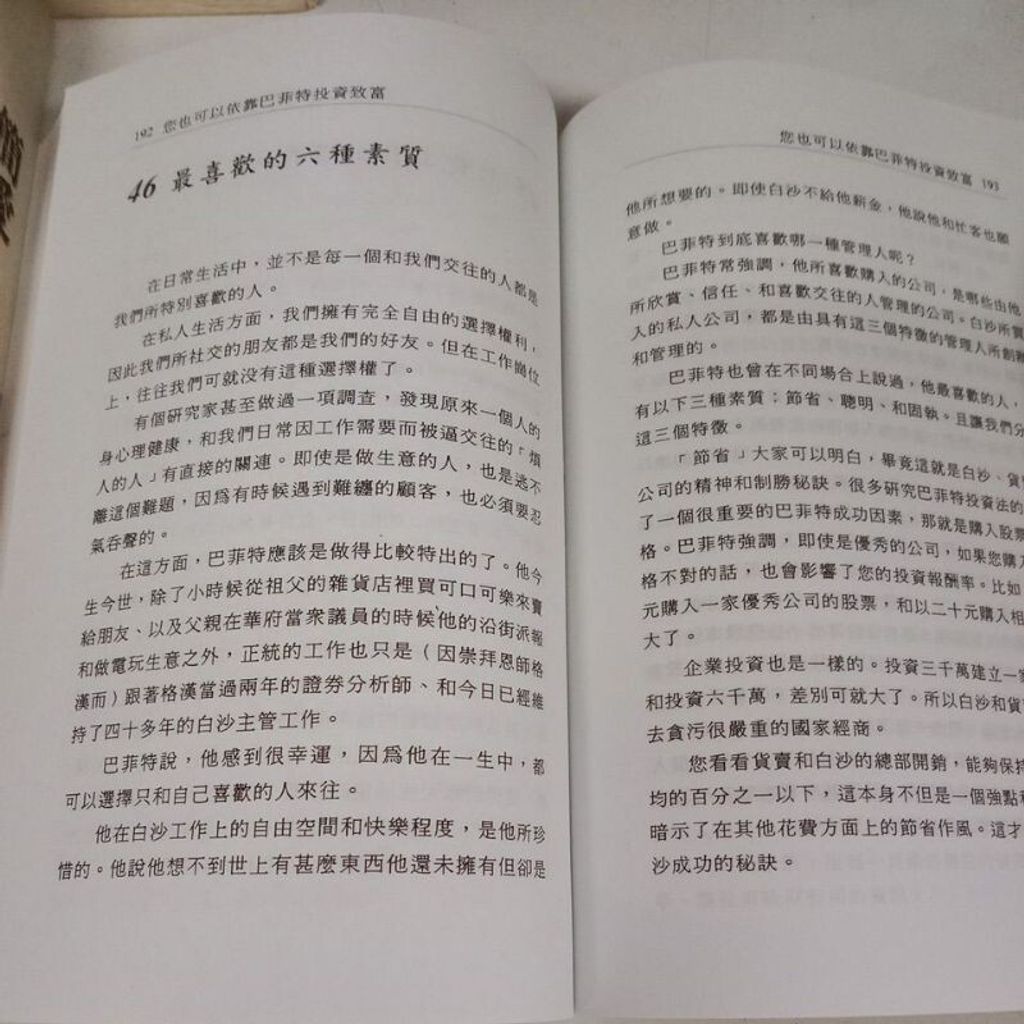 192 您也可以依靠巴菲特投資致富
46 最喜歡的六種素質
在日常生活中，並不是每一個和我們交往的人都是
我們所特別喜歡的人。
在私人生活方面，我們擁有完全自由的選擇權利，
因此我們所社交的朋友都是我們的好友。但在工作崗位
上，往往我們可就没有這種選擇權了。
有個研究家甚至做過一項調查，發現原來一個人的
身心理健康，和我們日常因工作需要而被逼交往的「煩
人的人」有直接的關連。即使是做生意的人，也是逃不
離這個難題，因爲有時候遇到難纏的顧客，也必須要忍
氣吞聲的。
在這方面，巴菲特應該是做得比較特出的了。他今
生今世，除了小時候從祖父的雜貨店裡買可口可樂來賣
給朋友、以及父親在華府當衆議員的時候他的沿街派報
和做電玩生意之外，正統的工作也只是（因崇拜恩師格
漢而）跟著格漢當過兩年的證券分析師、和今日已經維
持了四十多年的白沙主管工作。
巴菲特說，他感到很幸運，因爲他在一生中，都
可以選擇只和自己喜歡的人來往。
他在白沙工作上的自由空間和快樂程度，是他所珍
惜的。他說他想不到世上有甚麼東西他還未擁有但卻是
您也可以依靠巴菲特投資致富 193
他所想要的。即使白沙不給他薪金，他說他和忙客也願
意做。
巴菲特到底喜歡哪一種管理人呢？
巴菲特常強調，他所喜歡購入的公司，是哪些由他
所欣賞、信任、和喜歡交往的人管理的公司。白沙所買
入的私人公司，都是由具有這三個特徵的管理人所創辦
和管理的。
巴菲特也曾在不同場合上說過，他最喜歡的人，
有以下三種素質：節省、聰明、和固執。且讓我們分
這三個特徵。
「節省」大家可以明白，畢竟這就是白沙、貨
公司的精神和制勝秘訣。很多研究巴菲特投資法的
了一個很重要的巴菲特成功因素，那就是購入股票
格。巴菲特強調，即使是優秀的公司，如果您購入
格不對的話，也會影響了您的投資報酬率。比如
元購入一家優秀公司的股票，和以二十元購入相
大了。
企業投資也是一樣的。投資三千萬建立一家
和投資六千萬，差別可就大了。所以白沙和貨
去貪污很嚴重的國家經商。
您看看貨賣和白沙的總部開銷，能夠保持
均的百分之一以下，這本身不但是一個強點
暗示了在其他花費方面上的節省作風。這才
沙成功的秘訣。